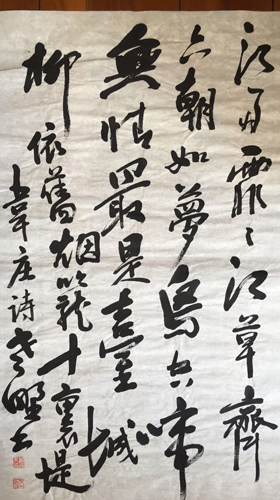 江雨霏〻江草齊
六朝如夢鳥空啼
無情最是臺城
柳依舊烟籠十裏堤
韋庄詩